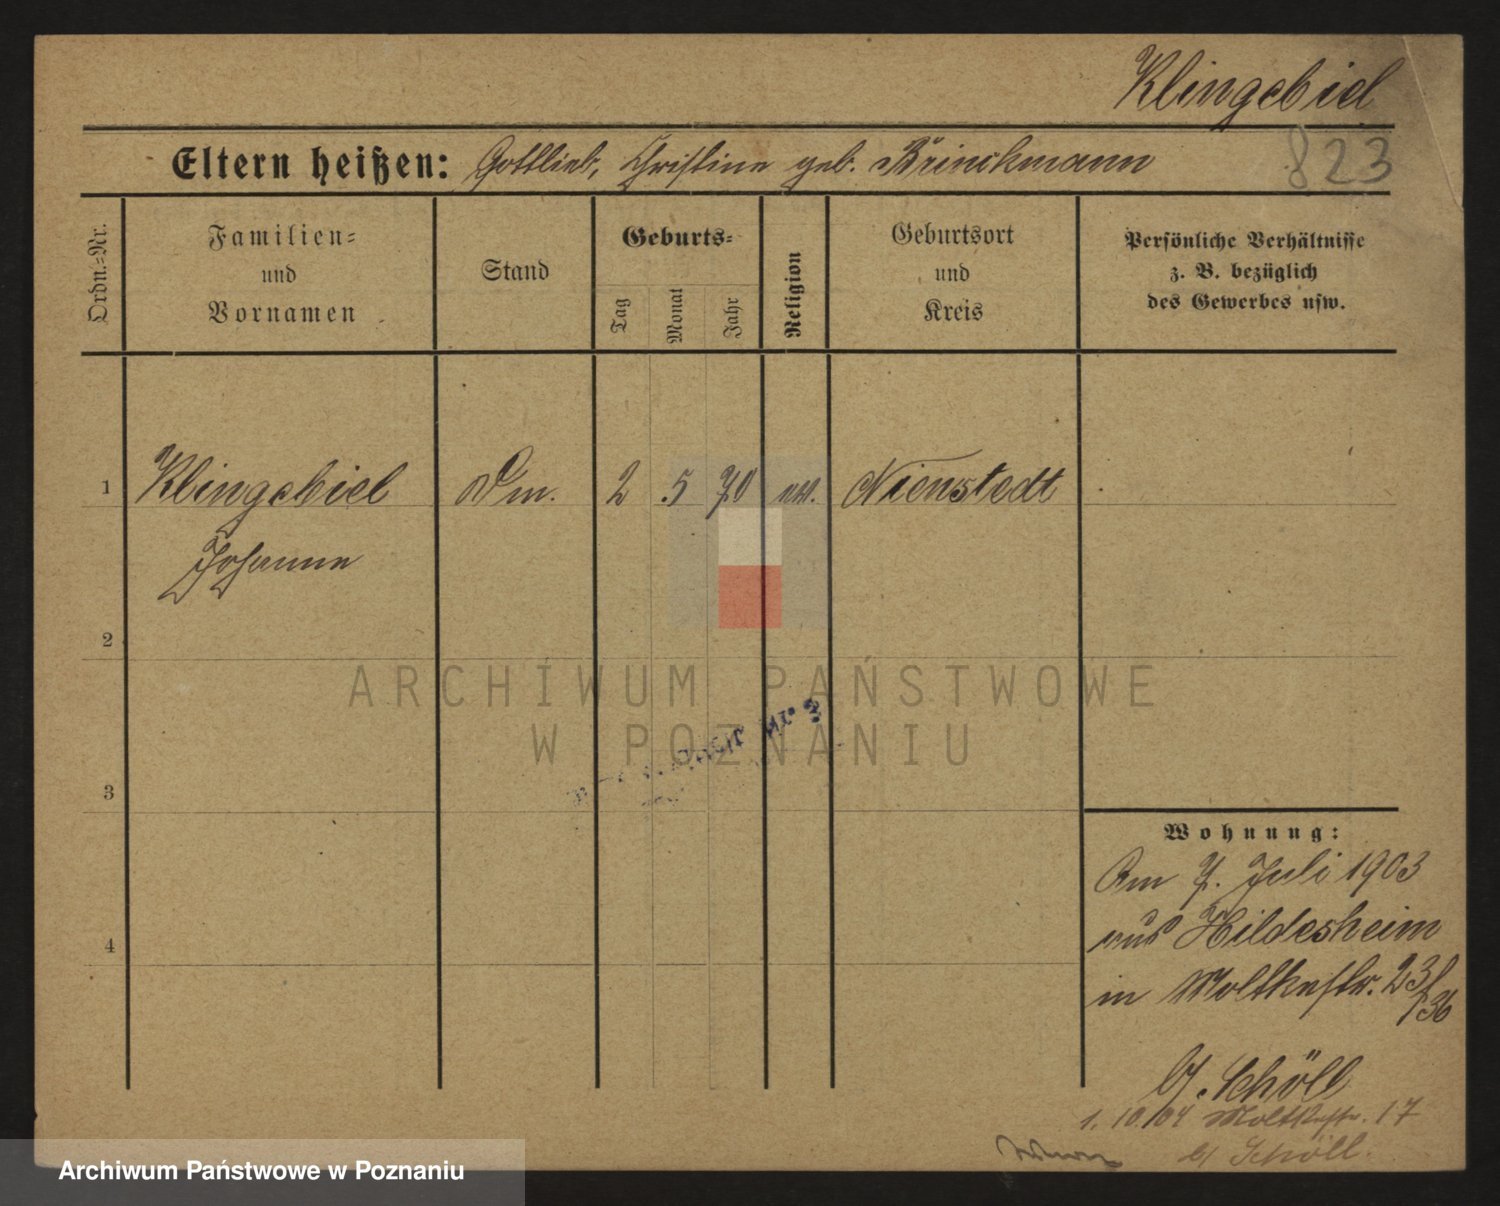 Klingebiel
823
Eltern heißen: Gottlieb, Christine geb. Brinckmann
Ordn.-Nr.
Familien-
und
Vornamen
Stand
Geburts-
Tag
Monat
Jahr
Religion
Geburtsort
und
Kreis
Persönliche Verhältnisse
z. B. bezüglich
des Gewerbes usw.
1 Klingebiel Dm. 2 5 70 ev. Nienstedt
Johanne
2
ARCHIWUM PAŃSTWOWE
W POZNANIU
Nr 3
3
Wohnung:
Am 7. Juli 1903
aus Hildesheim
in Moltkestr. 23/36
4
b/ Schöll
1. 10. 04 Moltkestr. 17
b/ Schöll.
Archiwum Państwowe w Poznaniu